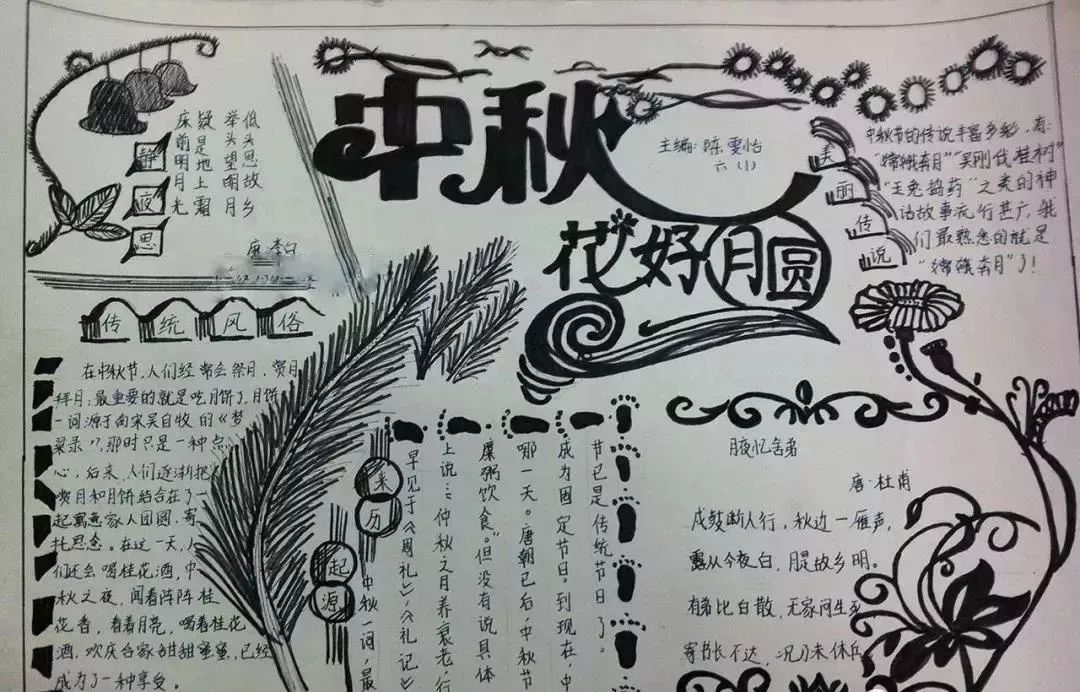 静夜思
床前明月光
疑是地上霜
举头望明月
低头思故乡
唐·李白
中秋
花好月圆
主编:陈雯怡
六(1)
美丽传说
中秋节的传说丰富多彩,有:
“嫦娥奔月”“吴刚伐桂树”
“玉兔捣药”之类的神
话故事流行甚广,我
们最熟悉的就是
“嫦娥奔月”了!
传统风俗
在中秋节,人们经常会祭月,赏月
拜月;最重要的就是吃月饼了,月饼
一词源于南宋吴自牧的《梦
粱录》,那时只是一种点
心,后来,人们逐渐把
赏月和月饼结合在了一
起寓意家人团圆,寄
托思念。在这一天,人
们还会喝桂花酒,中
秋之夜,闻着阵阵桂
花香,看着月亮,喝着桂花
酒,欢庆合家甜甜蜜蜜,已经
成为了一种享受。
来历
起源
中秋一词,最
早见于《周礼》《礼记》
上说:“仲秋之月养衰老,行
糜粥饮食。”但没有说具体
哪一天。唐朝已后,中秋节
成为固定节日。到现在,中
节已是传统节日了。
月夜忆舍弟
唐·杜甫
戍鼓断人行,秋边一雁声,
露从今夜白,月是故乡明。
有弟皆分散,无家问生死
寄书长不达,况乃未休兵